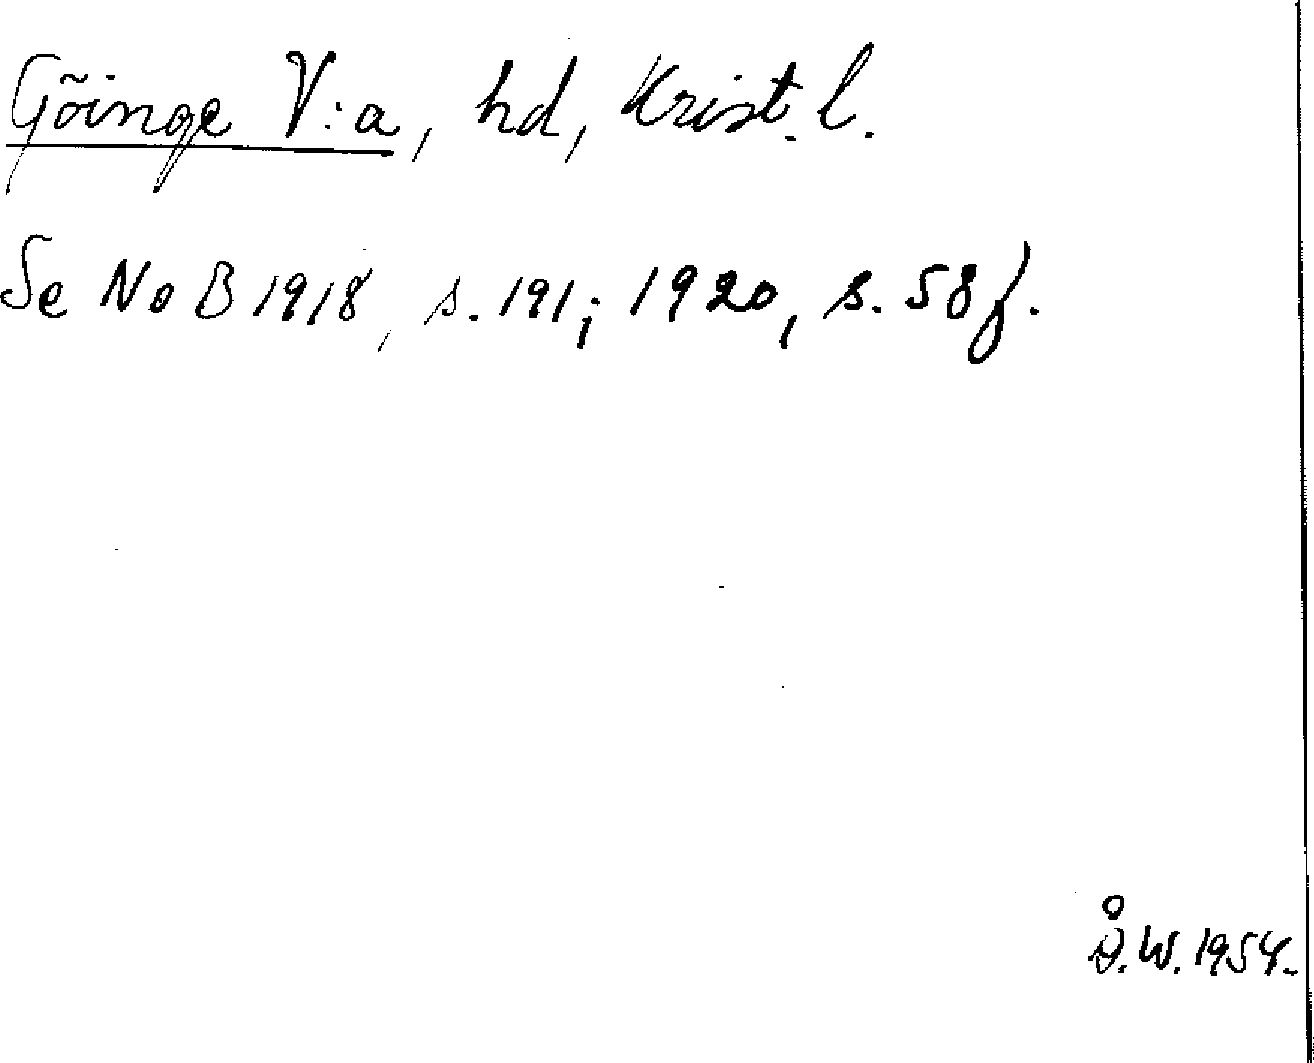 Göinge V:a, hd, Krist. l.
Se NoB 1918, s. 191; 1920, s. 58 f.
Å.W. 1954.